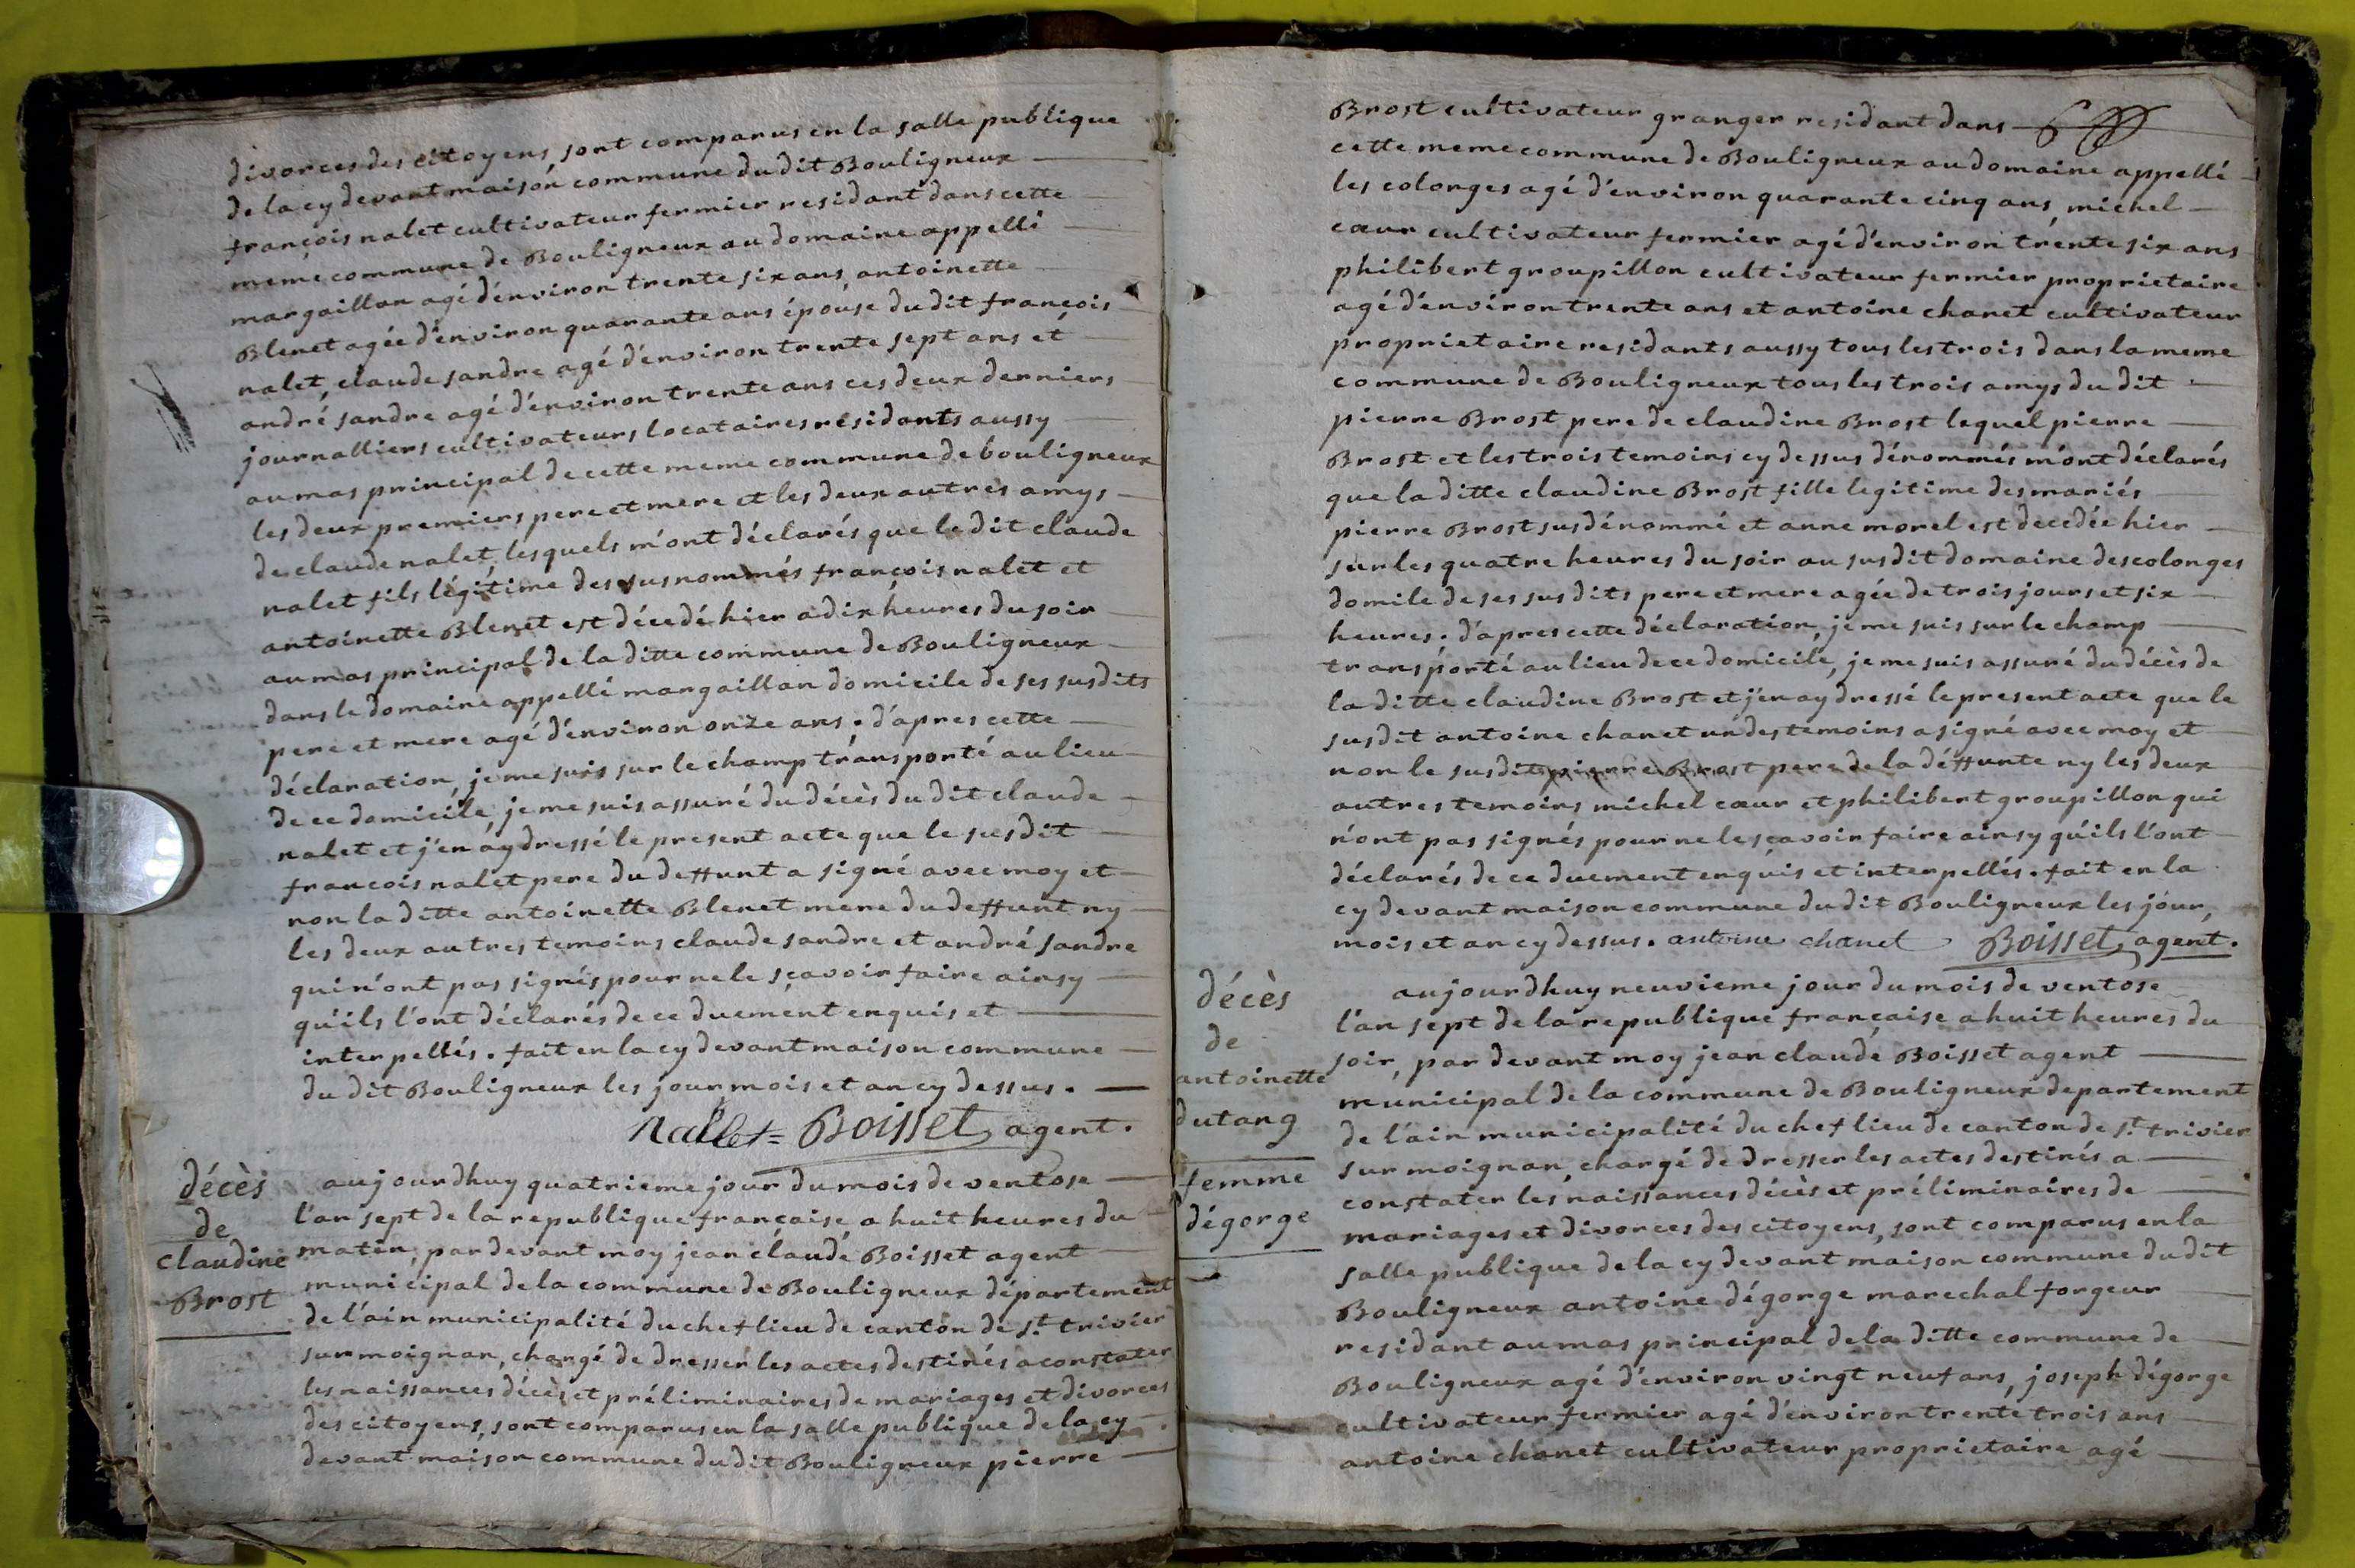 divorces des citoyens, sont comparus en la salle publique
de la cy devant maison commune du dit Bouligneux
françois nalet cultivateur fermier residant dans cette
meme commune de Bouligneux au domaine appellé
margaillan agé d'environ trente six ans, antoinette
Blenet agée d'environ quarante ans épouse du dit françois
nalet, claude sandre agé d'environ trente sept ans et
andré sandre agé d'environ trente ans ces deux derniers
journalliers cultivateurs locataires résidants aussy
au mas principal de cette meme commune de bouligneux
les deux premiers pere et mere et les deux autres amys
de claude nalet, lesquels m'ont déclarés que le dit claude
nalet fils légitime des susnommés françois nalet et
antoinette Blenet est décedé hier a dix heures du soir
au mas principal de la ditte commune de Bouligneux
dans le domaine appellé margaillan domicile de ses susdits
pere et mere agé d'environ onze ans. d'apres cette
déclaration, je me suis sur le champ transporté au lieu
de ce domicile, je me suis assuré du décès du dit claude
nalet et j'en ay dressé le present acte que le susdit
francois nalet pere du deffunt a signé avec moy et
non la ditte antoinette Blenet mere du deffunt ny
les deux autres temoins claude sandre et andré sandre
qui n'ont pas signés pour ne le sçavoir faire ainsy
qu'ils l'ont déclarés de ce duement enquis et
interpellés. fait en la cy devant maison commune
du dit Bouligneux les jour mois et an cy dessus.
Nallet = Boisset agent.
décès
de
claudine
Brost
aujourdhuy quatrieme jour du mois de ventose
l'an sept de la republique française a huit heures du
matin, par devant moy jean claude Boisset agent
municipal de la commune de Bouligneux département
de l'ain municipalité du chef lieu de canton de st. trivier
sur moignan, chargé de dresser les actes destinés a constater
les naissances décès et préliminaires de mariages et divorces
des citoyens, sont comparus en la salle publique de la cy
devant maison commune du dit Bouligneux pierre
Brost cultivateur granger residant dans
cette meme commune de Bouligneux au domaine appellé
les colonges agé d'environ quarante cinq ans, michel
cœur cultivateur fermier agé d'environ trente six ans
philibert groupillon cultivateur fermier proprietaire
agé d'environ trente ans et antoine chanet cultivateur
proprietaire residants aussy tous les trois dans la meme
commune de Bouligneux tous les trois amys du dit
pierre Brost pere de claudine Brost lequel pierre
Brost et les trois temoins cy dessus dénommés m'ont déclarés
que la ditte claudine Brost fille legitime des mariés
pierre Brost susdénommé et anne morel est decedée hier
sur les quatre heures du soir au susdit domaine des colonges
domile de ses susdits pere et mere agée de trois jours et six
heures. d'apres cette déclaration, je me suis sur le champ
transporté au lieu de ce domicile, je me suis assuré du décès de
la ditte claudine Brost et j'en ay dressé le present acte que le
susdit antoine chanet un des temoins a signé avec moy et
non le susdit pierre Brost pere de la déffunte ny les deux
autres temoins michel cœur et philibert groupillon qui
n'ont pas signés pour ne le sçavoir faire ainsy qu'ils l'ont
déclarés de ce duement enquis et interpellés. fait en la
cy devant maison commune du dit Bouligneux les jour,
mois et an cy dessus. antoine chanet Boisset agent.
décès
de
antoinette
dutang
femme
dégorge
aujourdhuy neuvieme jour du mois de ventose
l'an sept de la republique française a huit heures du
soir, par devant moy jean claude Boisset agent
municipal de la commune de Bouligneux departement
de l'ain municipalité du chef lieu de canton de st. trivier
sur moignan, chargé de dresser les actes destinés a
constater les naissances décès et préliminaires de
mariages et divorces des citoyens, sont comparus en la
salle publique de la cy devant maison commune du dit
Bouligneux antoine dégorge marechal forgeur
residant au mas principal de la ditte commune de
Bouligneux agé d'environ vingt neuf ans, joseph dégorge
cultivateur fermier agé d'environ trente trois ans
antoine chanet cultivateur proprietaire agé